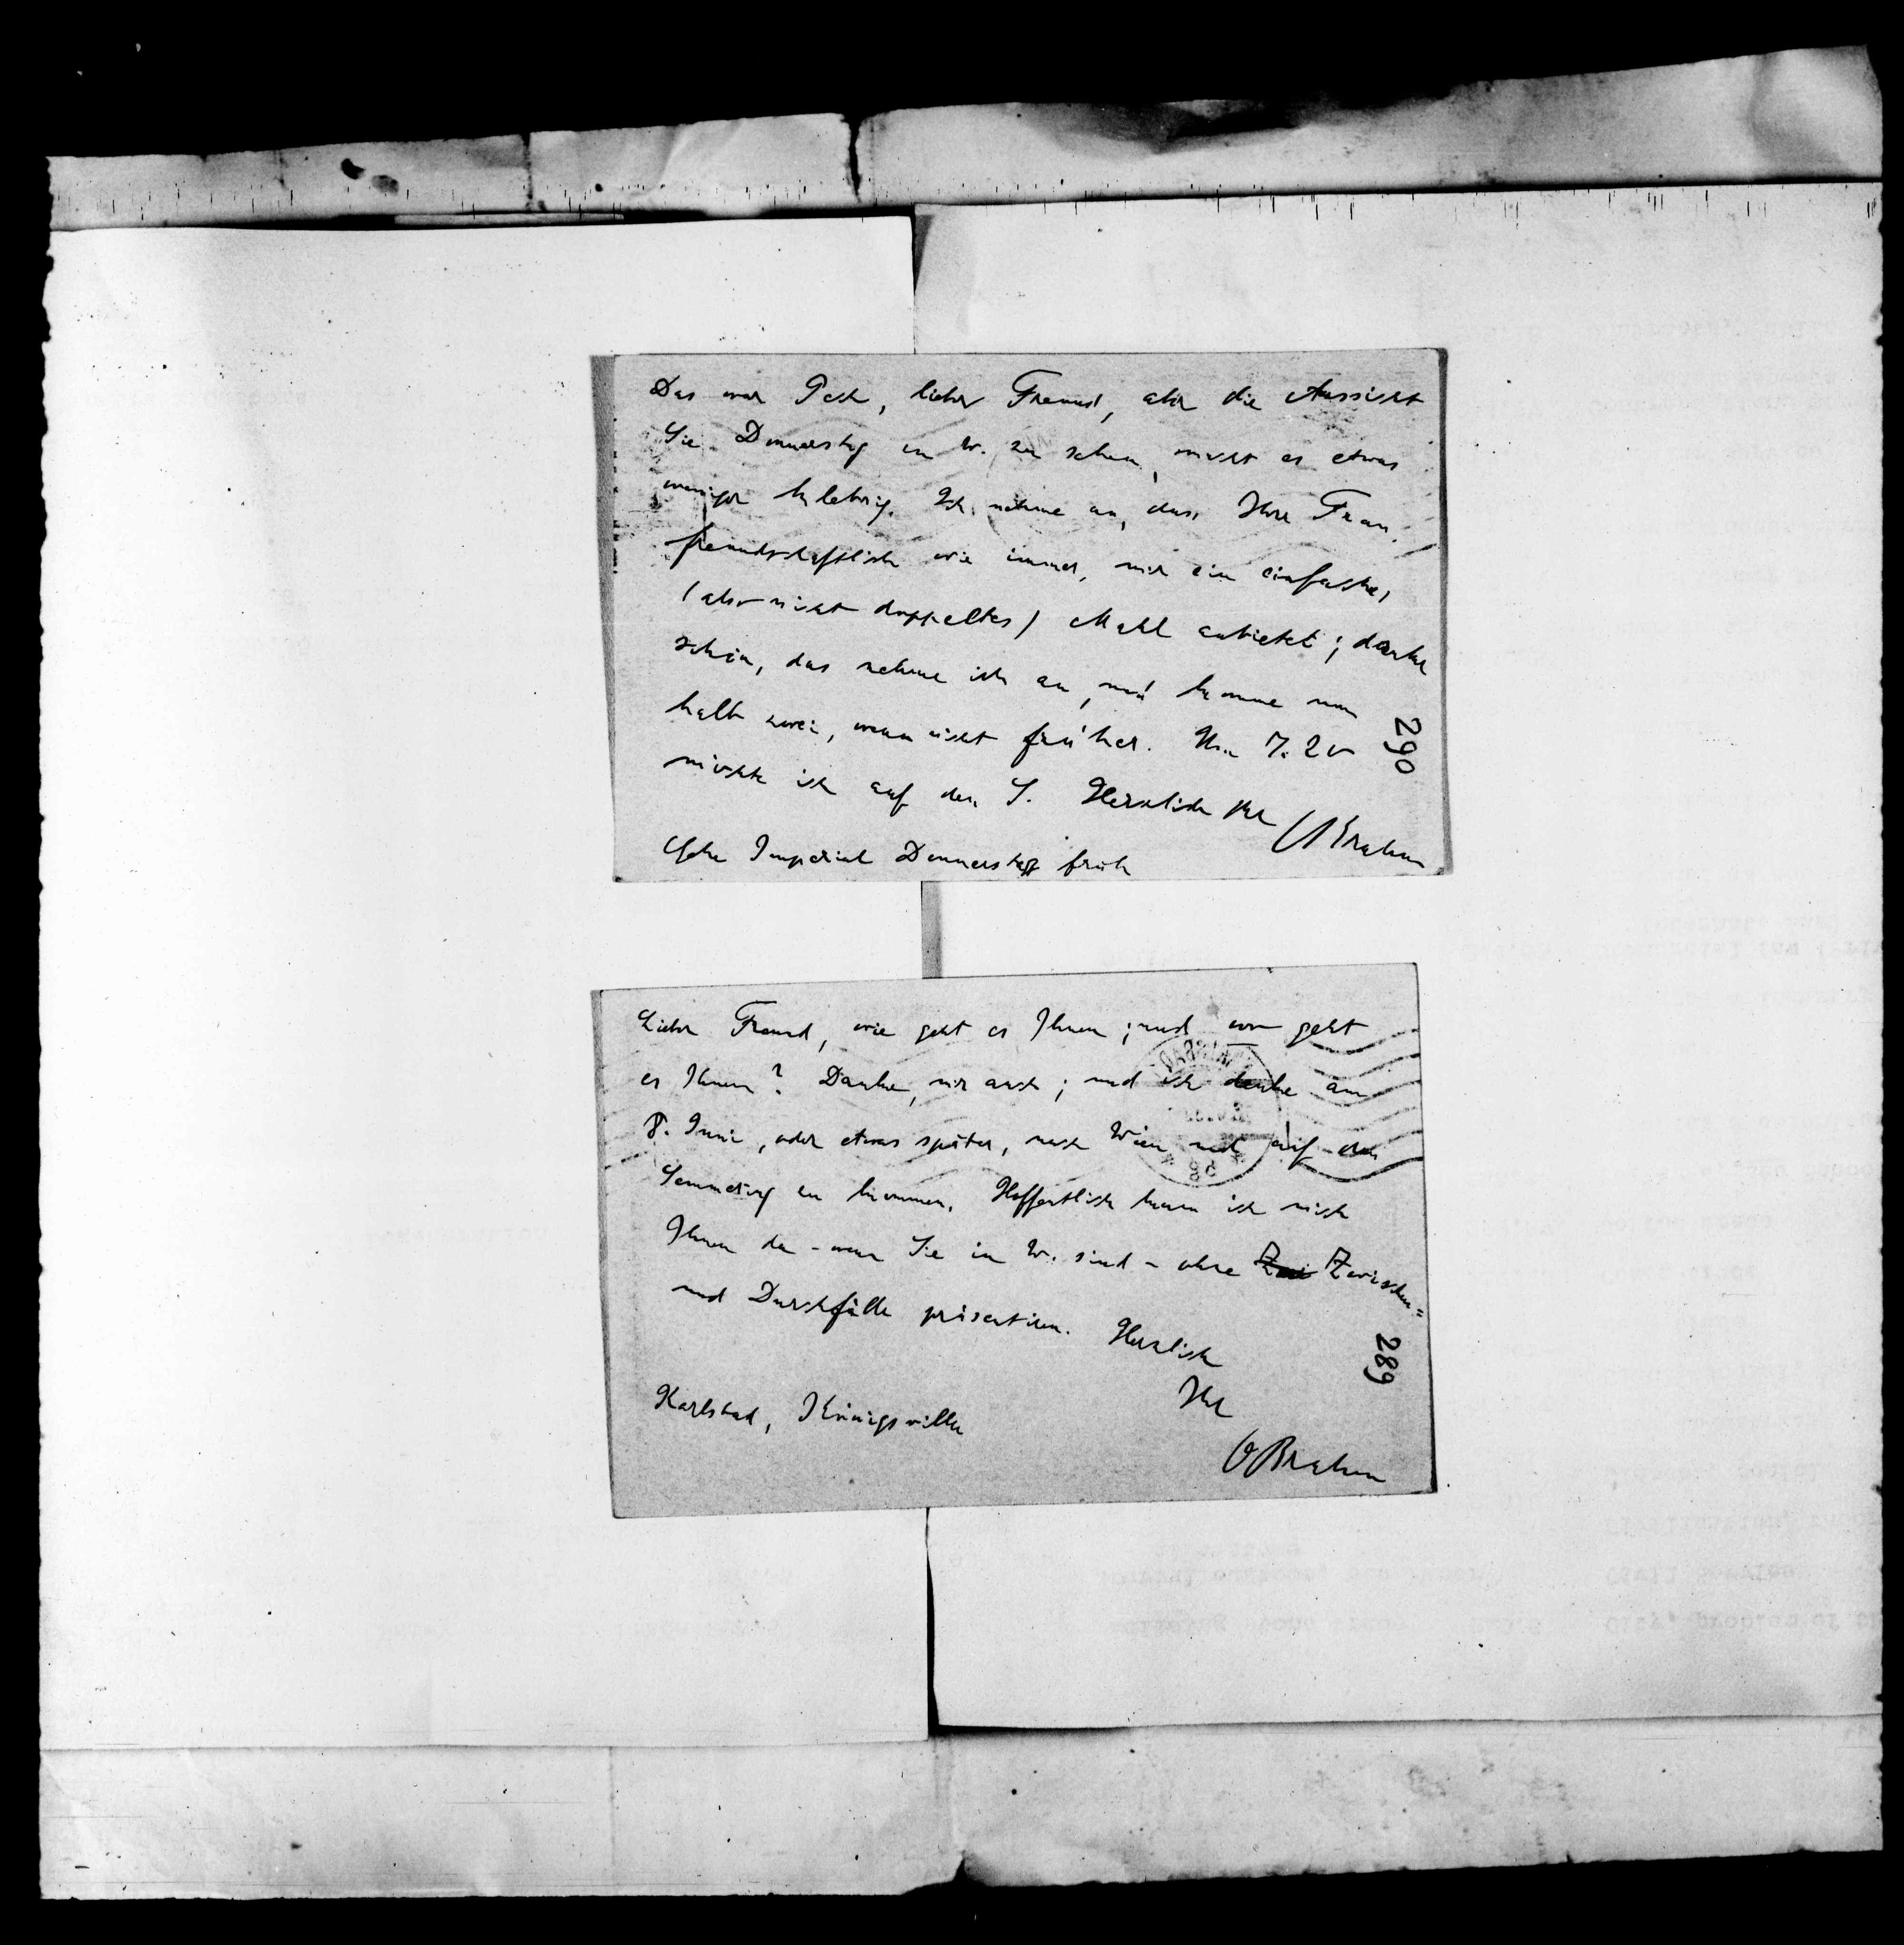 Das war Pech, lieber Freund, aber die Aussicht
Sie Donnerstag in W. zu sehen, macht es etwas
weniger klebrig. Ich nehme an, dass Ihre Frau,
freundschaftlich wie immer, mir ein einfaches
(also nicht doppeltes) Mahl anbietet; danke
schön, das nehme ich an, und komme um
halb zwei, wenn nicht früher. Um 7.20
möchte ich auf den S. Herzlich Ihr OBrahm
Gehe Imperial Donnerstag früh
290
Lieber Freund, wie geht es Ihnen; und wo geht
es Ihnen? Danke, mir auch; und ich denke am
8. Juni, oder etwas später, nach Wien und auf den
Semmering zu kommen. Hoffentlich kann ich mich
Ihnen da – wenn Sie in W. sind – ohne Zwi Zwischen=
und Durchfälle präsentiren. Herzlich
Ihr
OBrahm
Karlsbad, Königsvilla
289